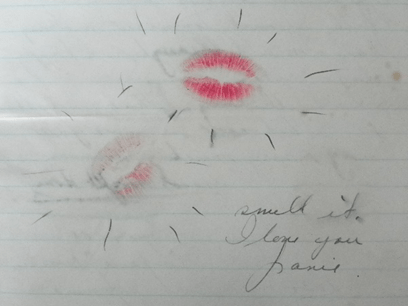 smell it.
I love you
Janie.